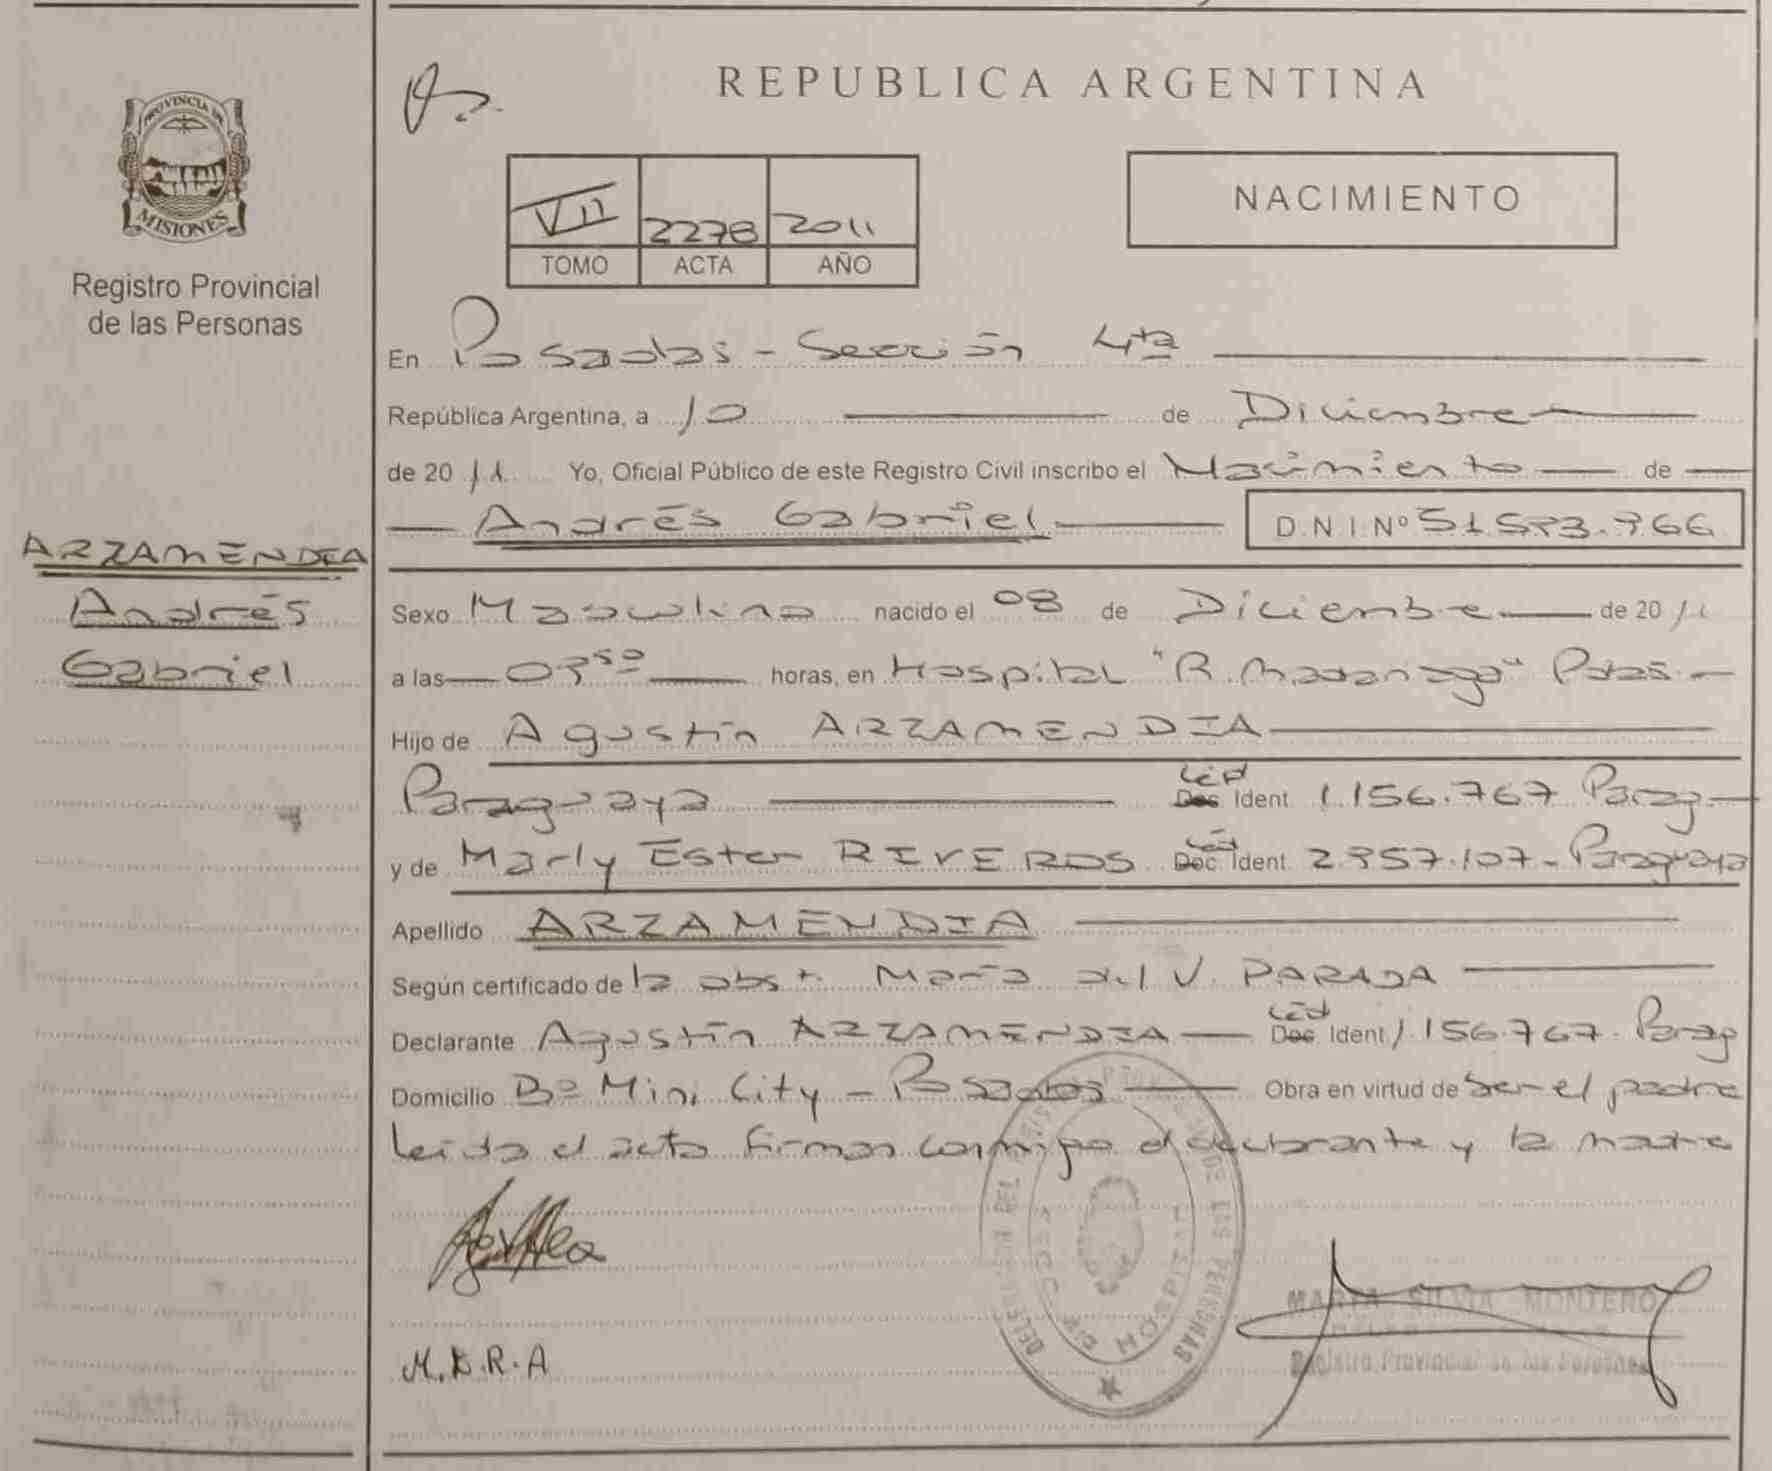 PROVINCIA DE
MISIONES
Registro Provincial
de las Personas
ARZAMENDIA
Andrés
Gabriel
REPUBLICA ARGENTINA
VII 2278 2011
TOMO ACTA AÑO
NACIMIENTO
En Posadas - Sección 4ta
República Argentina, a 10 de Diciembre
de 20 11 Yo, Oficial Público de este Registro Civil inscribo el Nacimiento de
Andrés Gabriel D.N.I.Nº 51.593.966
Sexo Masculino nacido el 08 de Diciembre de 20 11
a las 03 50 horas, en Hospital "R. Madariaga" Pdas -
Hijo de Agustín ARZAMENDIA
Paraguaya Céd Doc Ident 1.156.767 Parag
y de Marly Ester RIVEROS Céd Doc Ident 2.957.107 - Paraguaya
Apellido ARZAMENDIA
Según certificado de la obst. María del V. PARADA
Declarante Agustín ARZAMENDIA Céd Doc Ident 1.156.767 - Parag
Domicilio Bº Mini City - Posadas Obra en virtud de ser el padre
leída el acta firman conmigo el declarante y la madre
M.E.R.A
DELEGACION DEL REGISTRO PROVINCIAL DE LAS PERSONAS
HOSPITAL
MARTA SILVIA MONTERO
Registro Provincial de las Personas